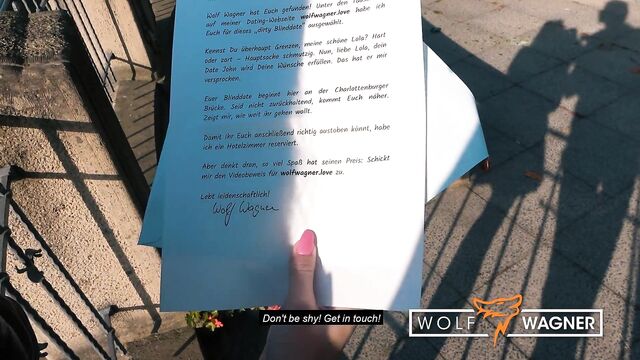 Wolf Wagner hat Euch gefunden! Unter den
auf meiner Dating-Webseite wolfwagner.love habe ich
Euch für dieses „dirty Blinddate" ausgewählt.
Kennst Du überhaupt Grenzen, meine schöne Lola? Hart
oder zart – Hauptsache schmutzig. Nun, liebe Lola, dein
Date John wird Deine Wünsche erfüllen. Das hat er mir
versprochen.
Euer Blinddate beginnt hier an der Charlottenburger
Brücke. Seid nicht zurückhaltend, kommt Euch näher.
Zeigt mir, wie weit ihr gehen wollt.
Damit Ihr Euch anschließend richtig austoben könnt, habe
ich ein Hotelzimmer reserviert.
Aber denkt dran, so viel Spaß hat seinen Preis: Schickt
mir den Videobeweis für wolfwagner.love zu.
Lebt leidenschaftlich!
Wolf Wagner
Don't be shy! Get in touch!
WOLF WAGNER